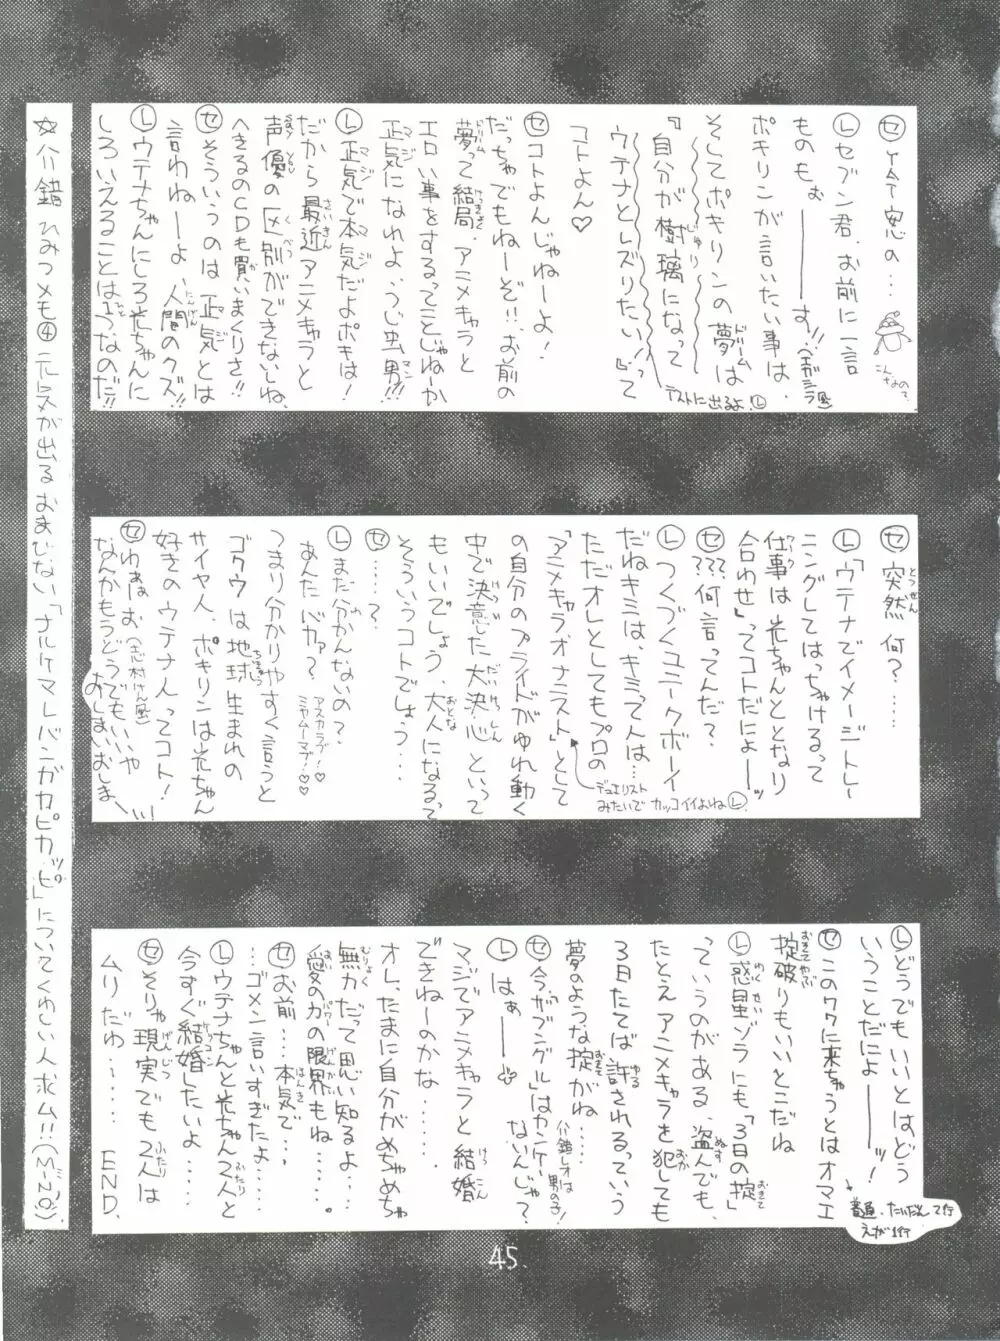 ㋝ YAT安心の…
こんなので
Ⓛセブン君、お前に一言
ものもぉ――――す!!
ポキリンが言いたい事は、
そしてポキリンの夢は
『自分が樹璃になって
ウテナとレズりたい!!』って
テストに出るよ!Ⓛ
コトよん♡
㋝コトよんじゃねーよ!
だっちゃでもねーぞ!!、お前の
夢って結局、アニメキャラと
エロい事をするってことじゃねーか
正気になれよ、うじ虫男!!!
Ⓛ正気で本気だよポキは!
だから最近アニメキャラと
声優の区別ができないしね、
へきるのCDも買いまくりさ!!
㋝そういうのは正気とは
言わねーよ、人間のクズ!!
Ⓛウテナちゃんにしろ光ちゃんに
しろいえることは1つなのだ!!
㋝突然何?……
Ⓛ「ウテナでイメージトレー
ニングしてはっちゃけるって
仕事は光ちゃんととなり
合わせ」ってコトだにょーッ
㋝???何言ってんだ?
Ⓛつくづくユニークボーイ
だねキミは、キミって人は…
ただオレとしてもプロの
「アニメキャラオナニスト」として
デュエリスト
みたいでカッコイイよねⓁ
の自分のプライドがゆれ動く
中で決意した大決心といって
もいいでしょう、大人になるって
そういうコトでしょう…
㋝……?
Ⓛまだ分かんないの?
あんたバカァ?
アスカラブ!♡
ミヤムーマブ!♡♡
つまり分かりやすく言うと
ゴクウは地球生まれの
サイヤ人、ポキリンは光ちゃん
好きのウテナ人ってコト!
㋝ゆぁぉぉ(志村けん風)
なんかもうどうでもいいや
おしまいおしま―い!!
Ⓛどうでもいいとはどう
いうことだにょ――ッ!
㋝このワクに来ちゃうとはオマエ
普通、たいだんって行
えが1行
掟破りもいいとこだね
Ⓛ惑星ゾラにも「3日の掟」
っていうのがある、盗んでも、
たとえアニメキャラを犯しても
3日たてば許されるっていう
夢のような掟がね……
介錯レオは
男の子!
㋝今ザブングルはカンケー
ないんじゃ?
Ⓛはぁ――♡
マジでアニメキャラと結婚
できねーのかな……
オレ、たまに自分がめちゃめちゃ
無力だって思い知るよ……
愛の力の限界もね……。
㋝お前……本気で…、
…ゴメン言いすぎたよ……
Ⓛウテナちゃんと光ちゃん2人と
今すぐ結婚したいよ……
㋝そりゃ現実でも2人は
ムリだわ…… END.
☆介錯ひみつメモ④元気が出るおまじない「ナルケマレバンガカピカッピッ」についてくわしい人求ム!!(MINO).
45